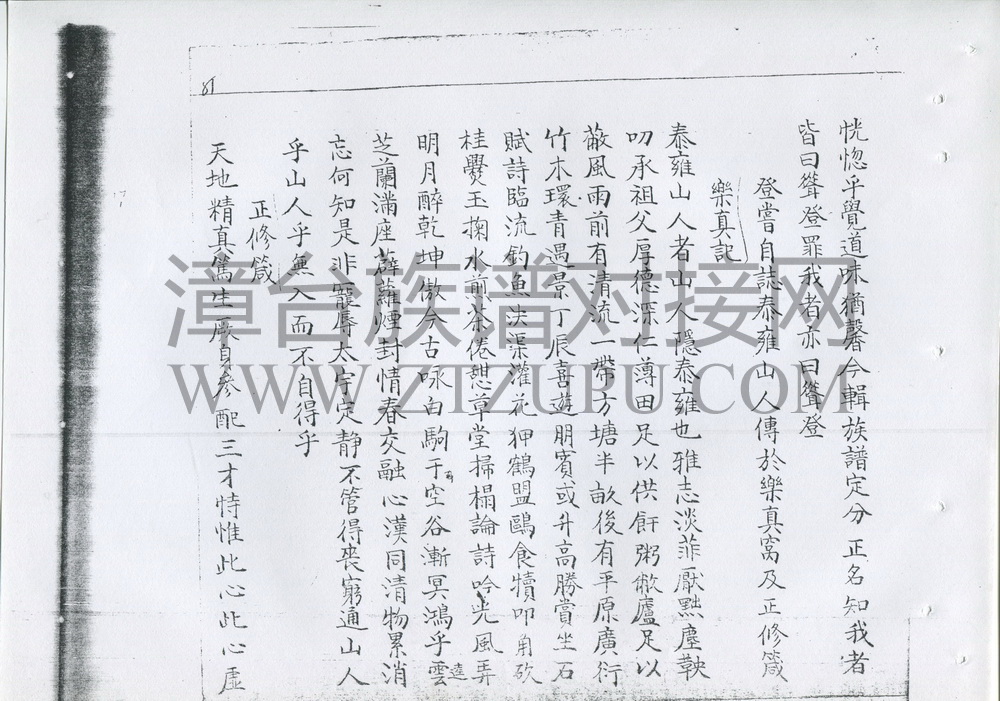 恍惚乎覺道味猶馨今輯族譜定分正名知我者
皆曰聳登罪我者亦曰聳登
登嘗自誌泰雍山人傳於樂真窩及正修箴
樂真記
泰雍山人者山人隱泰雍也雅志淡菲厭點塵鞅
叨承祖父厚德深仁薄田足以供飦粥敝廬足以
蔽風雨前有清流一帶方塘半畝後有平原廣衍
竹木環青遇景丁辰喜遊朋賓或升高勝賞坐石
賦詩臨流釣魚決渠灌花狎鶴盟鷗食犢叩角砍
桂爨玉掬水煎茶倦憩草堂掃榻論詩吟光風弄
明月醉乾坤傲今古咏白駒于空谷漸冥鴻乎雲逵
芝蘭滿座薜蘿煙封情春交融心漢同清物累消
忘何知是非寵辱太宇定靜不管得喪窮通山人
乎山人乎無入而不自得乎
正修箴
天地精真篤生厥身參配三才恃惟此心此心虛
81
漳台族谱对接网
WWW.ZTZUPU.COM